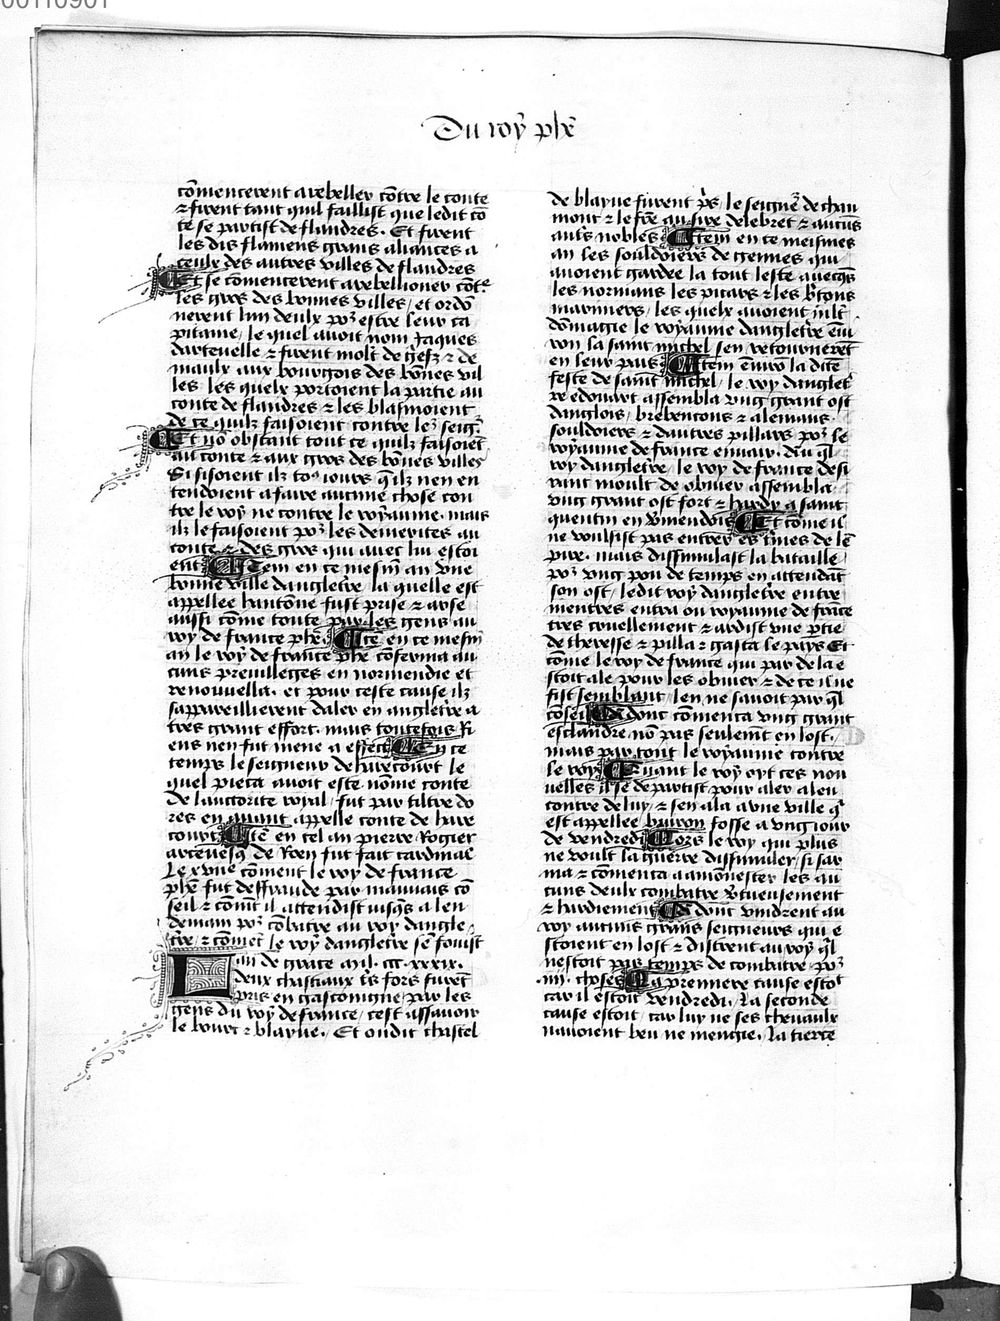 00110901
Du roy phẽ
cõmencerent a rebeller cõtre le conte
⁊ firent tant quil faillist que ledit cõ
te se partist de flandres. Et firent
les dis flamens grans aliances a
ceulx des autres villes de flandres
Et se cõmencerent a rebellioner cõtre
les gros des bonnes villes / et ordõ
nerent lun deulx poʒ estre leur ca
pitaine / le quel auoit nom Jaques
dartenelle ⁊ firent molt de ⁊ de
maulx aux bourgois des bõnes vil
les les quelx portoient la partie au
conte de flandres ⁊ les blasmoient
de ce quilz faisoient contre les seig.
Et nõ obstant tout ce quilz faisoiẽt
au conte ⁊ aux gros des bõnes villes
Si disoient ilz tous iours q̃ ilz nen en
tendoient a faire aucune chose con
tre le roy ne contre le royaume. mais
ilz le faisoient poʒ les demerites du
conte ⁊ des gros qui auec lui estoi
ent Item en ce mesm̃ an vne
bonne ville dangletr̃e la quelle est
appellee hantõne fust prise ⁊ arse
aussi cõme toute par les gens au
roy de france phẽ. Itẽ en ce mesm̃
an le roy de france phẽ cõferma au
cuns preuilleges en normendie et
renouuella. et pour ceste cause ilz
sappareillierent daler en angletr̃e a
tres grant effort. mais toutefois Ri
ens nen fut mene a effect En ce
temps le seigneur de harecourt le
quel pieca auoit este nõme conte
de lauctorite royal / fut par tiltre do
res en auant appelle conte de hare
court Itẽ en cel an pierre Rogier
arceuesq̃ de Roen fut fait cardinal
Le xviie cõment le roy de france
phẽ fut deffraude par mauuais cõ
seil ⁊ cõmt il attendist iusq̃s a len
demain poʒ cõbatre au roy dangle
tr̃e / ⁊ cõmet le roy dangletr̃e sẽ fouist
Lan de grace mil. ccc. xxxix.
deux chastiaux tres fors furẽt
pris en gascoingne / par les
gens du roy de france / cest assauoir
le bourc ⁊ blayue. Et oudit chastel
de blayue furent p̃s / le seignẽ de chau
mont ⁊ le fr̃e au sire delebret ⁊ aucũs
autr̃s nobles Item en ce meismes
an les souldoiers de gennes qui
auoient gardee la tout leste auecq̃s
les normans les picars ⁊ les br̃tons
mariniers / les quelx auoient mlt̃
dõmagie le royaume dangletr̃e enui
ron la saint michel sen retournerẽt
en leur pais Item enuirõ la dicte
feste de saint michel / le roy danglet̃
re edouart assembla vng grant ost
danglois / brebencons ⁊ alemans.
souldoiers ⁊ dautres pillars poʒ le
royaume de france enuair. Du q̃l
roy dangletr̃e / le roy de france desi
rant moult de obuier assembla
vng grant ost fort ⁊ hardy a saint
quentin en v̾mendois Et cõme il
ne voulsist pas entrer es t̾mes de lẽ
pire. mais dissimulast la bataille
poʒ vng pou de temps en attendãt
son ost / ledit roy dangletr̃e entre
mentres entra ou royaume de frãce
tres cruellement ⁊ ardist vne p̃tie
de theresse ⁊ pilla ⁊ gasta le pays Et
cõme le roy de france qui par dela e
stoit ale pour les obuier ⁊ de ce il ne
fist semblant / len ne sauoit par q̃l
cõseil dont cõmenca vng grant
esclandre nõ pas seulemt̃ en lost.
mais par tout le royaume contre
le roy Quant le roy oyt ces nou
uelles il se departist pour aler a len
contre de luy ⁊ sen ala a vne ville q̃
est appellee buiron fosse a vng iour
de vendredi Lors le roy qui plus
ne voult la guerre dissimuler / si sar
ma ⁊ cõmenca a amõnester les au
cuns deulx combatre v̾tueusement
⁊ hardiement dont vindrent au
roy aucuns grans seigneurs qui e
stoient en lost ⁊ distrent au roy q̃l
nestoit pas temps de combatre poʒ
.iiii. choses La premiere cause estoit
car il estoit vendredi. La seconde
cause estoit / car luy ne ses cheuaulx
nauoient beu ne mengie. La tierce